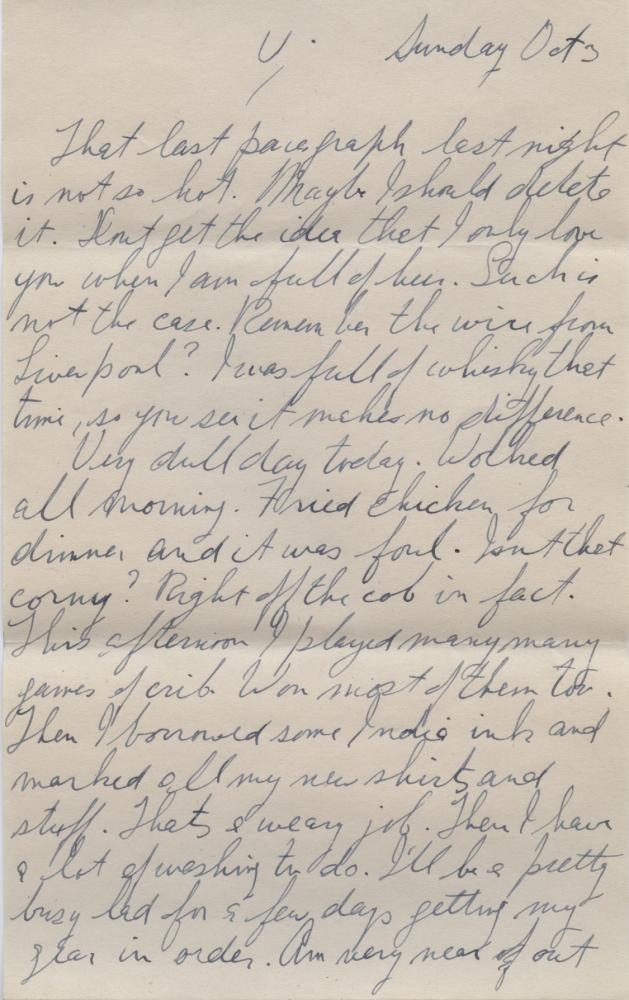 V.
Sunday Oct 3
That last paragraph last night
is not so hot. Maybe I should delete
it. Dont get the idea that I only love
you when I am full of beer. Such is
not the case. Remember the wire from
Liverpool? I was full of whisky that
time, so you see it makes no difference.
Very dull day today. Worked
all morning. Fried chicken for
dinner and it was foul. Isnt that
corny? Right off the cob in fact.
This afternoon I played many many
games of crib. Won most of them too.
Then I borrowed some India ink and
marked all my new shirts and
stuff. Thats a weary job. Then I have
a lot of washing to do. I'll be a pretty
busy lad for a few days getting my
gear in order. Am very near out